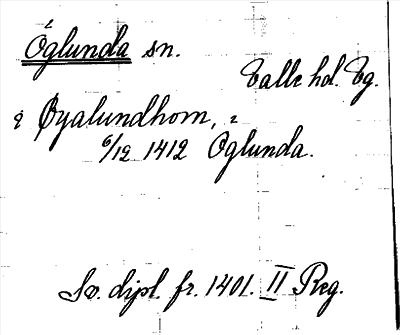 Öglunda sn.
Valle hd. Vg.
i Øyalundhom,
6/12 1412 Oglunda.
Sv. dipl. fr. 1401. II Reg.